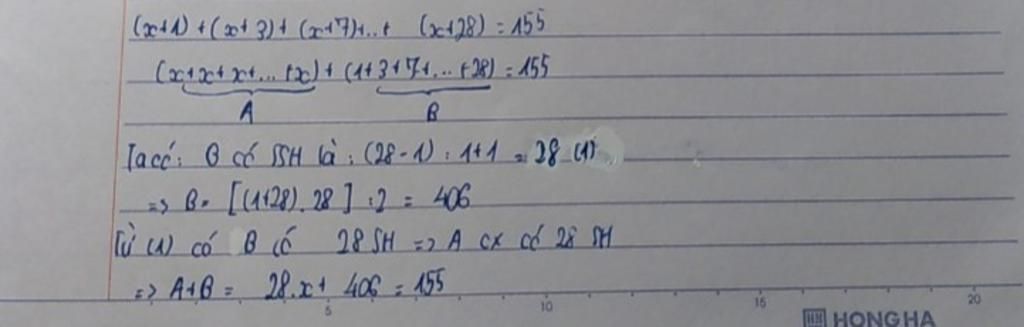 (x+1) + (x+3) + (x+7)+..+ (x+28) = 155
(x+x+x+...+x) + (1+3+7+...+28) = 155
A B
Ta có: B có SSH là: (28-1) : 1+1 = 28 (1)
=> B = [(1+28).28] :2 = 406
Từ (1) có B có 28 SH => A cx có 28 SH
=> A+B = 28.x + 406 = 155
5 10 15 20
HONG HA